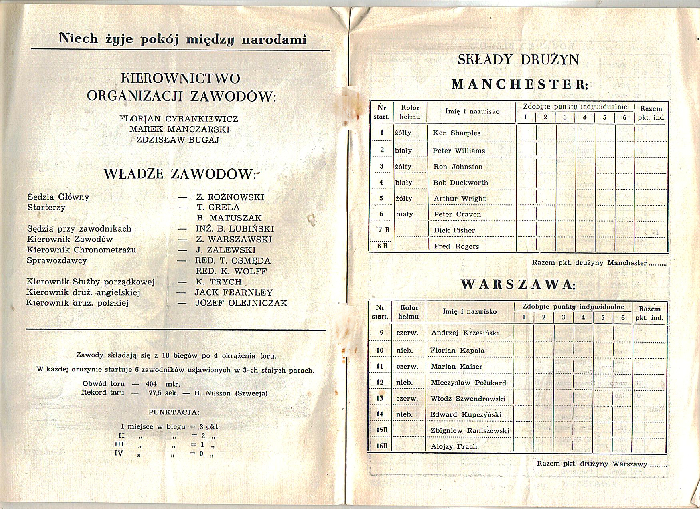 Niech żyje pokój między narodami
KIEROWNICTWO
ORGANIZACJI ZAWODÓW:
FLORJAN CYRANKIEWICZ
MAREK MANCZARSKI
ZDZISŁAW BUGAJ
WŁADZE ZAWODÓW:
Sędzia Główny — Z. ROŻNOWSKI
Starterzy — T. GRELA
H. MATUSZAK
Sędzia przy zawodnikach — INŻ. B. LUBIŃSKI
Kierownik Zawodów — Z. WARSZAWSKI
Kierownik Chronometrażu — J. ZALEWSKI
Sprawozdawcy — RED. T.
RED. K. WOLFF
Kierownik Służby porządkowej — K. TRYCH
Kierownik druż. angielskiej — JACK FEARNLEY
Kierownik druż. polskiej — JÓZEF OLEJNICZAK
Zawody składają się z 18 biegów po 4 okrążenia toru.
W każdej drużynie startuje 6 zawodników ustawionych w 3-ch stałych parach.
Obwód toru — 404 mtr.
Rekord toru — 77,6 sek. — O. Nilsson (Szwecja)
PUNKTACJA:
I miejsce w biegu = 3 pkt
II „ „ = 2 „
III „ „ = 1 „
IV „ „ = 0 „
SKŁADY DRUŻYN
MANCHESTER:
Nr start. Kolor hełmu Imię i nazwisko Zdobyte punkty indywidualne Razem pkt. ind.
1 2 3 4 5 6
1 żółty Ken Sharples
2 biały Peter Williams
3 żółty Ron Johnston
4 biały Bob Duckworth
5 żółty Arthur Wright
6 biały Peter Craven
7 R Dick Fisher
8 R Fred Rogers
Razem pkt. drużyny Manchester
WARSZAWA:
Nr start. Kolor hełmu Imię i nazwisko Zdobyte punkty indywidualne Razem pkt. ind.
1 2 3 4 5 6
9 czerw. Andrzej Krzesiński
10 nieb. Florian Kapała
11 czerw. Marian Kaiser
12 nieb. Mieczysław Połukard
13 czerw. Włodz Szwendrowski
14 nieb. Edward Kupczyński
15R Zbigniew Raniszewski
16R Alojzy Frach
Razem pkt. drużyny Warszawy